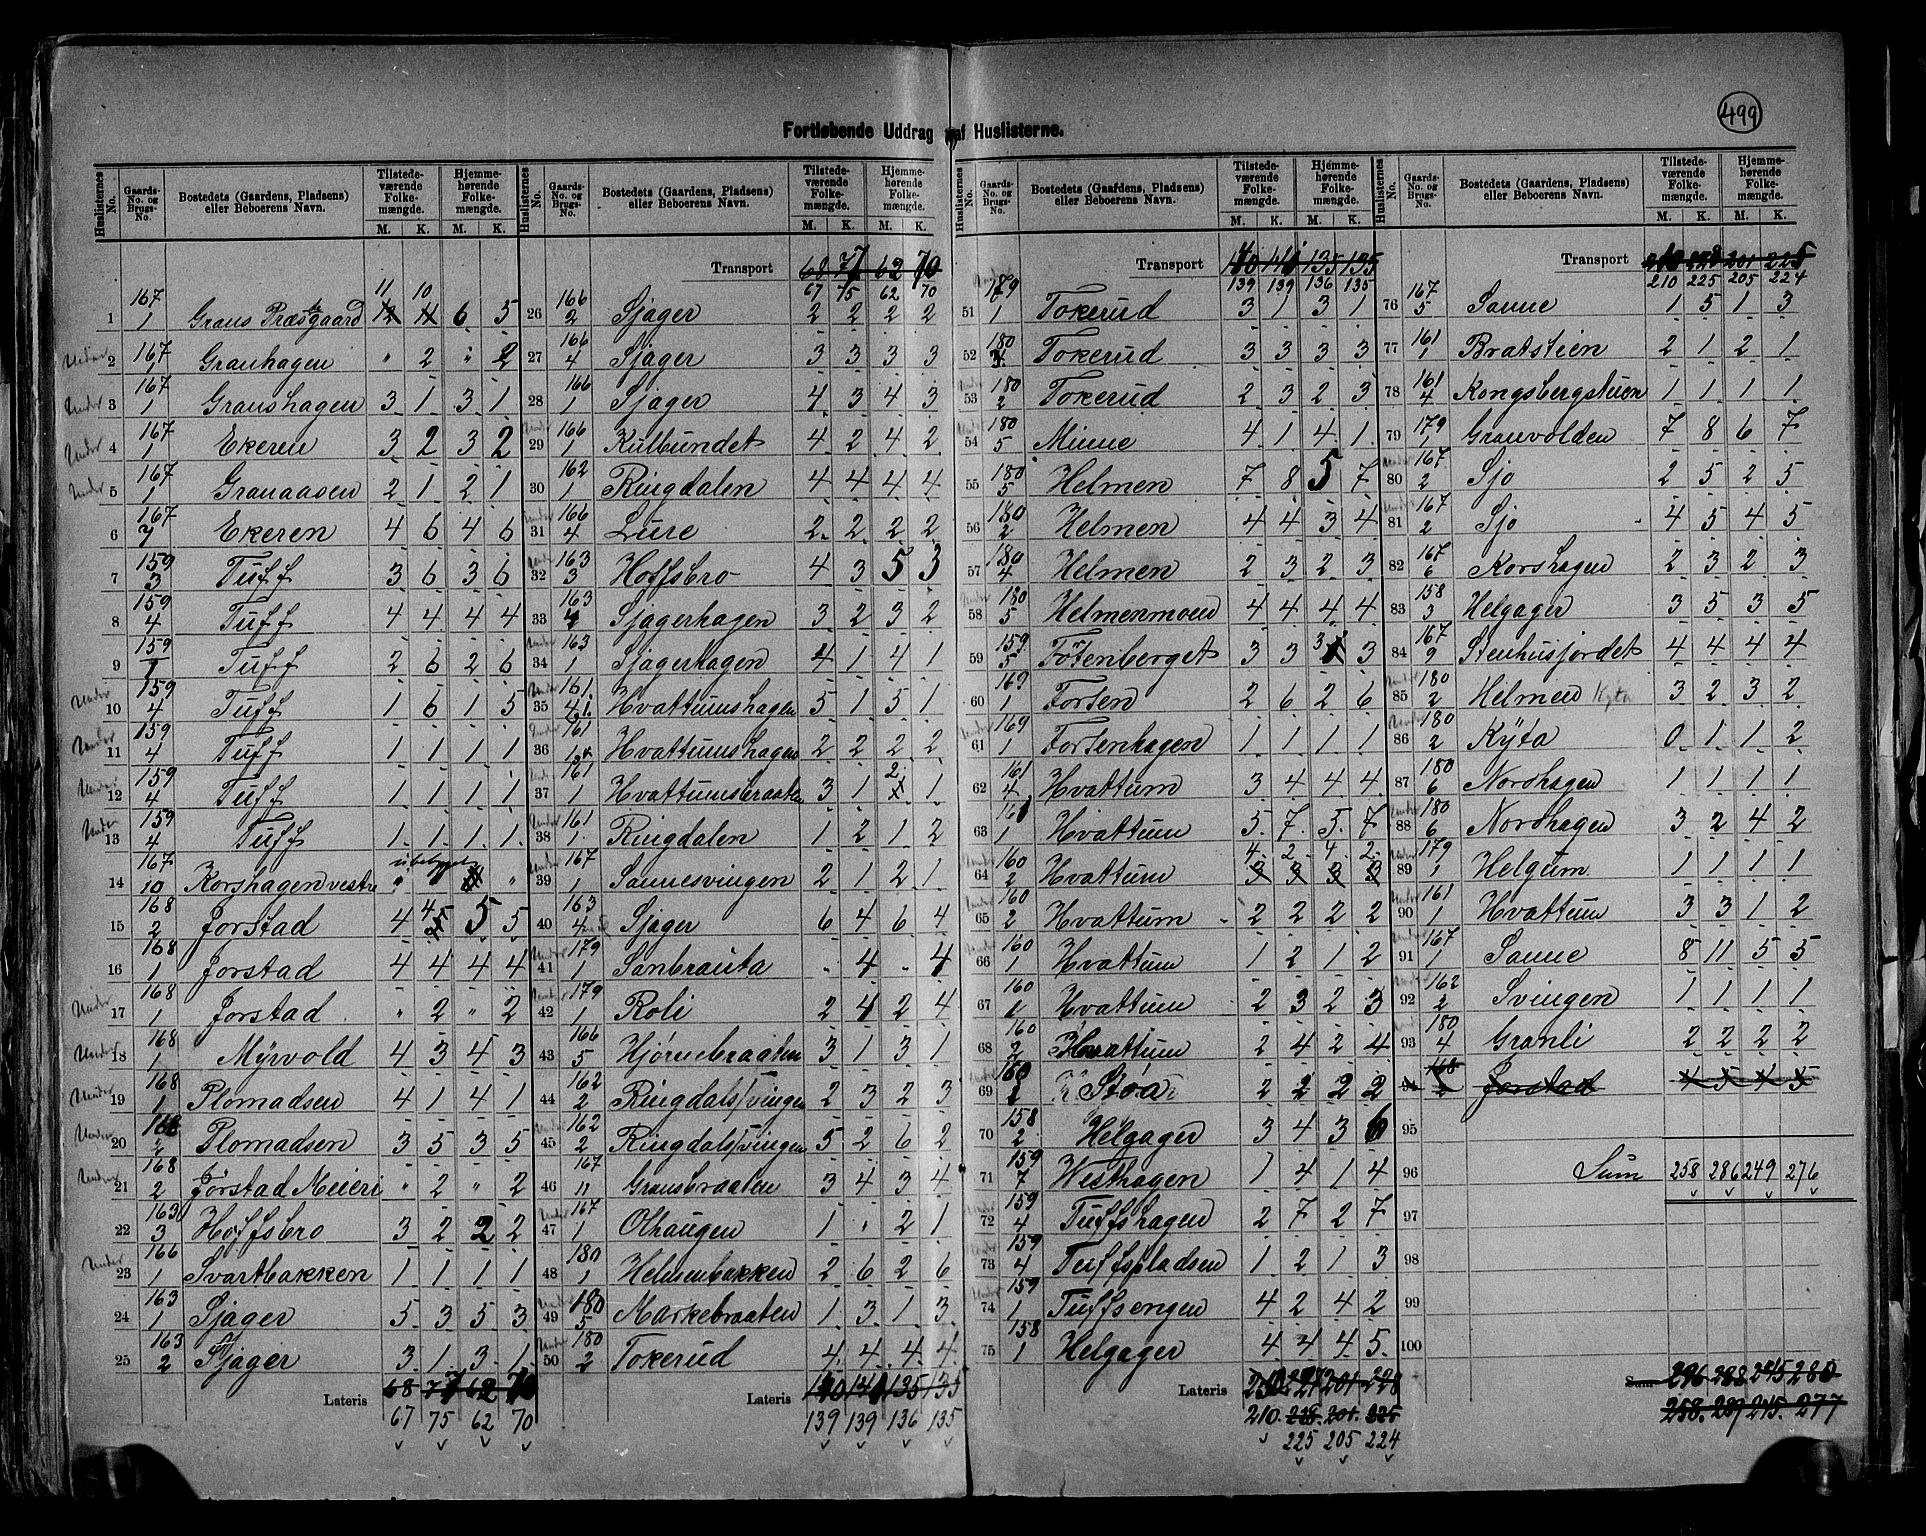 499
Fortløbende Uddrag af Huslisterne.
Huslisternes No. | Gaards-No. og Brugs-No. | Bostedets (Gaardens, Pladsens) eller Beboerens Navn. | Tilstedeværende Folkemængde. M. K. | Hjemmehørende Folkemængde. M. K.
11 10
1 167/1 Grans Præstegaard 12 11 6 5
Under 2 167/1 Granhagen " 2 " 2
Under 3 167/1 Granshagen 3 1 3 1
Under 4 167/1 Ekeren 3 2 3 2
Under 5 167/1 Granaasen 2 1 2 1
6 167/7 Ekeren 4 6 4 6
7 159/3 Tuff 3 6 3 6
8 159/4 Tuff 4 4 4 4
9 159/1 Tuff 2 6 2 6
Under 10 159/4 Tuff 1 6 1 5
Under 11 159/4 Tuff 1 1 1 1
Under 12 159/4 Tuff 1 1 1 1
Under 13 159/4 Tuff 1 1 1 1
14 167/10 Korshagen vestre ubebygget
15 168/2 Jorstad 4 4 5 5
16 168/1 Jorstad 4 4 4 4
Under 17 168/1 Jorstad " 2 " 2
Under 18 168/1 Myrvold 4 3 4 3
Under 19 168/1 Plomadsen 4 1 4 1
Under 20 168/2 Plomadsen 3 5 3 5
Under 21 168/2 Jørstad Meieri " 2 " 2
22 163/3 Hoffsbro 3 2 2 2
Under 23 166/1 Svartbakken 1 1 1 1
24 163/1 Sjager 5 3 5 3
25 163/2 Sjager 3 1 3 1
Lateris 68 77 62 70
67 75 62 70
Transport 68 77 62 70
67 75 62 70
26 166/2 Sjager 2 2 2 2
27 166/4 Sjager 3 3 3 3
28 166/1 Sjager 4 3 4 3
29 166/1 Kulbundet 4 2 4 2
30 162/1 Ringdalen 4 4 4 4
31 166/4 Lure 2 2 2 2
32 163/3 Hoffsbro 4 3 5 3
33 163/4 Sjagerhagen 3 2 3 2
34 163/1 Sjagerhagen 4 1 4 1
35 161 Hvattumshagen 5 1 5 1
36 161 Hvattumshagen 2 2 2 2
37 161/1 Hvattumsbraaten 3 1 2 1
38 161/1 Ringdalen 1 2 1 2
39 167/1 Sannesvingen 2 1 2 1
40 163/4 Sjager 6 4 6 4
41 179/1 Sanbrauta " 4 " 4
42 179/1 Roli 2 4 2 4
43 166/5 Hjørnebraaten 3 1 3 1
44 162/2 Ringdalssvingen 2 3 2 3
45 162/2 Ringdalssvingen 5 2 6 2
46 167/11 Gransbraaten 3 4 3 4
47 167/1 Olhaugen 1 " 2 1
48 180/1 Helmenbakken 2 6 2 6
49 180/5 Markebraaten 1 3 1 3
50 180/2 Tokerud 4 4 4 4
Lateris 140 141 135 135
139 139 136 135
Transport 140 141 135 135
139 139 136 135
51 179/1 Tokerud 3 1 3 1
52 180 Tokerud 3 3 3 3
53 180/2 Tokerud 2 3 2 3
54 180/5 Minne 4 1 4 1
55 180/5 Helmen 7 8 5 7
56 180/2 Helmen 4 4 3 4
57 180/4 Helmen 2 3 2 3
58 180/5 Helmenmoen 4 4 4 4
59 159/5 Fotenberget 3 3 3 3
60 169/1 Forten 2 6 2 6
61 169/1 Fortenhagen 1 1 1 1
62 161/4 Hvattum 3 4 4 4
63 161/1 Hvattum 5 7 5 7
4 2 4 2
64 160/2 Hvattum 3 3 3 3
65 160/2 Hvattum 2 2 2 2
66 160/1 Hvattum 1 2 1 2
67 160/1 Hvattum 2 3 2 3
68 160/2 Hvattum 2 4 2 4
69 160/1 Stoa 2 2 2 2
70 158/2 Helgager 3 4 3 6
71 159/7 Westhagen 1 4 1 4
72 159/4 Tuffshagen 2 7 2 7
73 159/4 Tuffspladsen 1 2 1 3
74 159/1 Tuffsengen 4 2 4 2
75 158/1 Helgager 4 4 4 5
Lateris 210 227 201 228
210 228 201 225
225 205 224
Transport 210 228 201 225
210 225 205 224
76 167/5 Sanne 1 5 1 3
77 161/1 Bratstien 2 1 2 1
78 161/4 Kongsbergstuen 1 1 1 1
79 179/1 Granvolden 7 8 6 7
80 167/2 Sjo 2 5 2 5
81 167/2 Sjo 4 5 4 5
82 167/6 Korshagen 2 3 2 3
83 158/3 Helgager 3 5 3 5
84 167/9 Stenhusjordet 4 4 4 4
85 180/2 Helmen Kyta 3 2 3 2
86 180/2 Kyta 0 1 1 2
87 180/6 Nordhagen 1 1 1 1
88 180/6 Nordhagen 3 2 4 2
89 179/1 Helgum 1 1 1 1
90 161/1 Hvattum 3 3 1 2
91 167/1 Sanne 8 11 5 5
92 162/2 Svingen 1 1 1 1
93 180/4 Granli 2 2 2 2
94 168/2 Jorstad 4 5 4 5
95
96 Sum 258 286 249 276
97
98
99
100
Sum 296 288 245 280
258 287 245 277